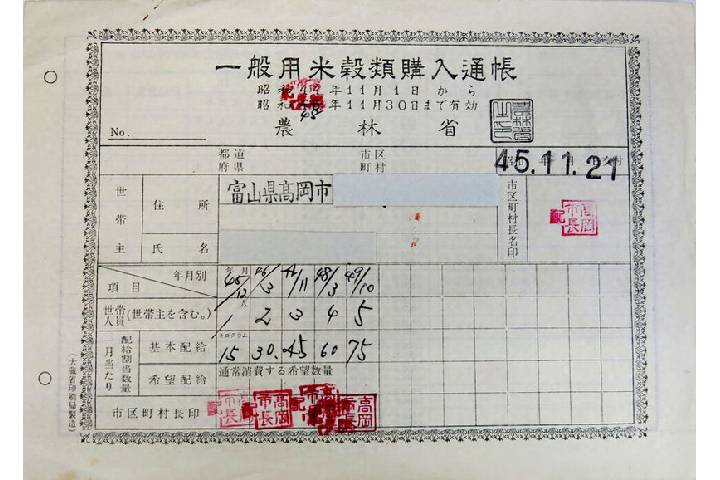 一般用米穀類購入通帳
昭和 年11月1日から
昭和 年11月30日まで有効
農林省
No.
都道府県 市区町村
45.11.21
世帯主 住所 富山県高岡市
氏名
市区町村長名印
高岡市長
項目 年月別 45/12 46/3 48/3 49/10
世帯人員(世帯主を含む。) 1 2 3 4 5
月当たり配給割当数量 基本配給 15 30 45 60 75
希望配給 通常消費する希望数量
市区町村長印
高岡市長